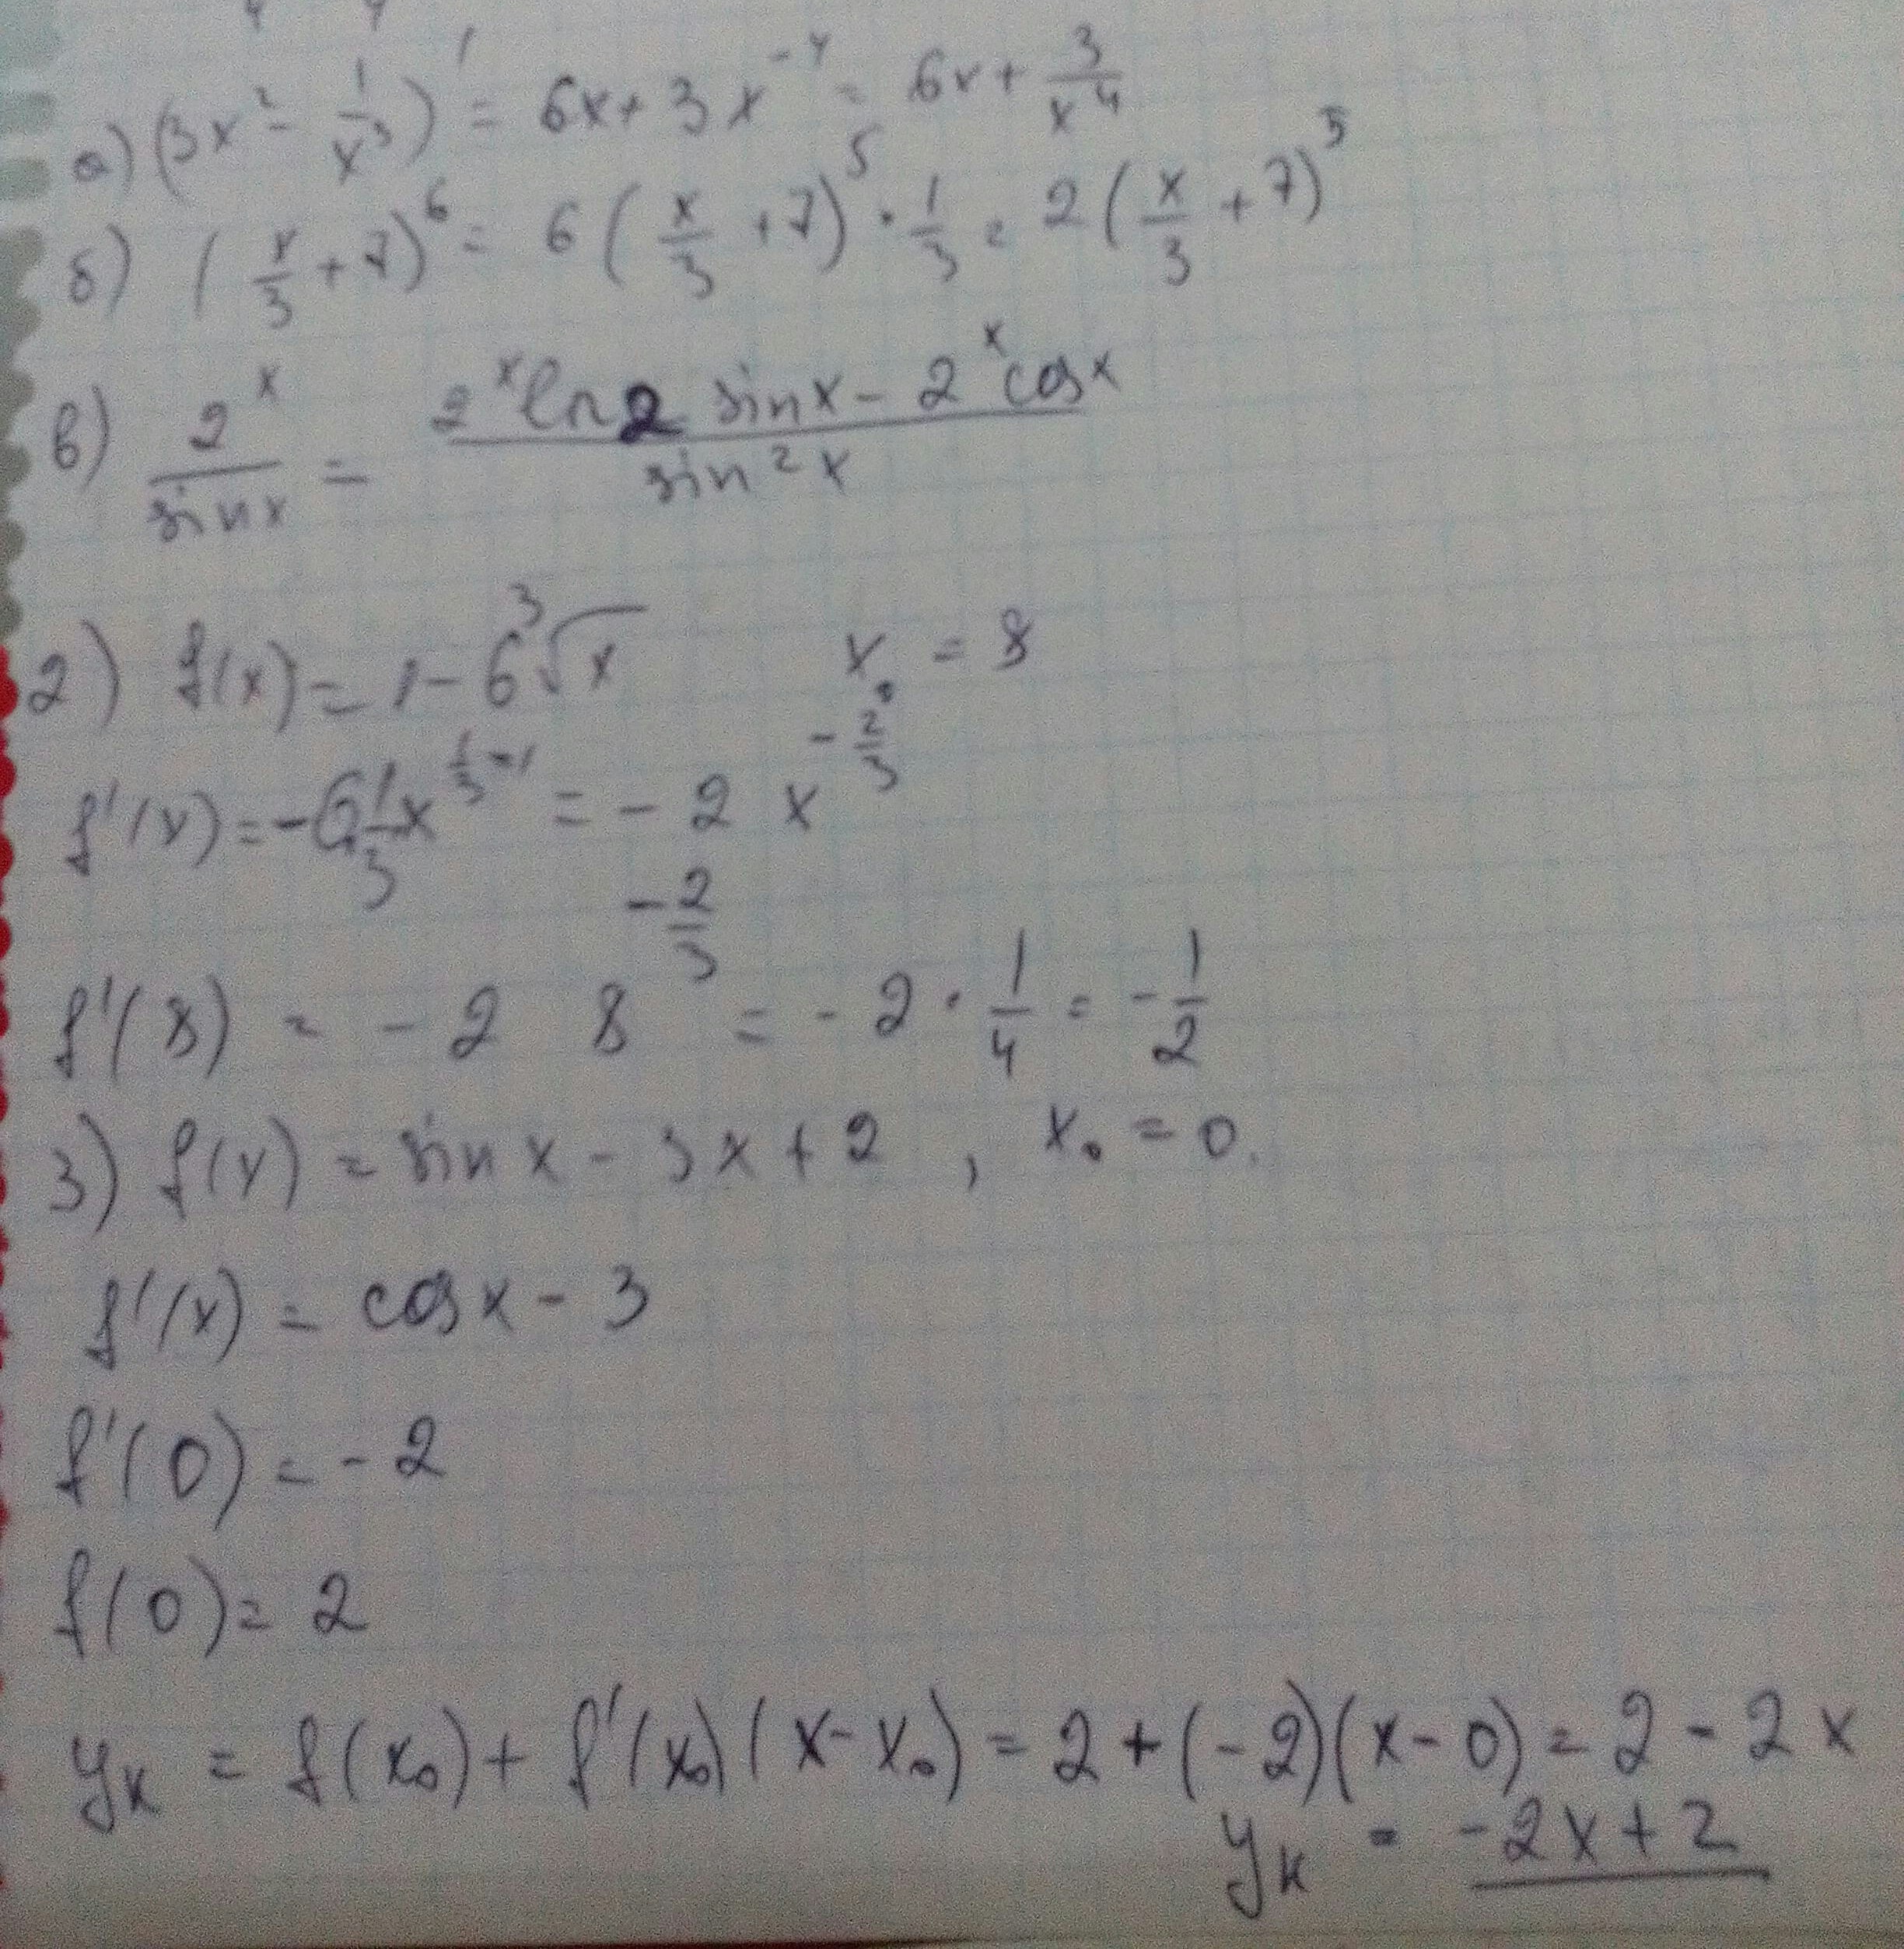 а) (3x² - 1/x³)' = 6x + 3x⁻⁴ = 6x + 3/x⁴
б) (x/3 + 7)⁶ = 6(x/3 + 7)⁵ · 1/3 = 2(x/3 + 7)⁵
в) 2ˣ/sin x = (2ˣ ln 2 sin x - 2ˣ cos x)/sin² x
2) f(x) = 1 - 6∛x x₀ = 8
f'(x) = -6 · 1/3 x^(1/3 - 1) = -2 x^(-2/3)
f'(8) = -2 8^(-2/3) = -2 · 1/4 = -1/2
3) f(x) = sin x - 3x + 2 , x₀ = 0.
f'(x) = cos x - 3
f'(0) = -2
f(0) = 2
yк = f(x₀) + f'(x₀)(x - x₀) = 2 + (-2)(x - 0) = 2 - 2x
yк = -2x + 2